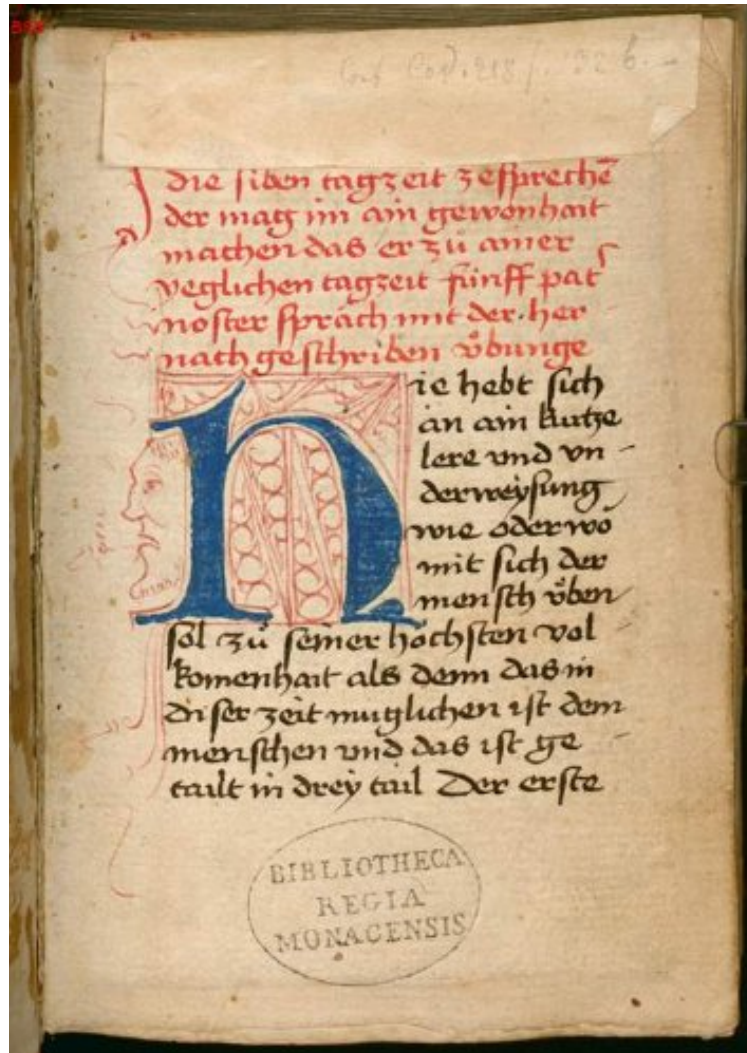 Cod. 218
die siben tagzeit zesprechē
der mag im ain gewonhait
machen das er zů ainer
yeglichen tagzeit fünff pat
noster spräch mit der her
nach geschriben v̊bunge
Hie hebt sich
an ain kurtze
lere vnd vn
derweysung
wie oder wo
mit sich der
mensch v̊ben
sol zů seiner höchsten vol
komenhait als denn das in
diser zeit muglichen ist dem
menschen vnd das ist ge
tailt in drey tail Der erste
BIBLIOTHECA
REGIA
MONACENSIS